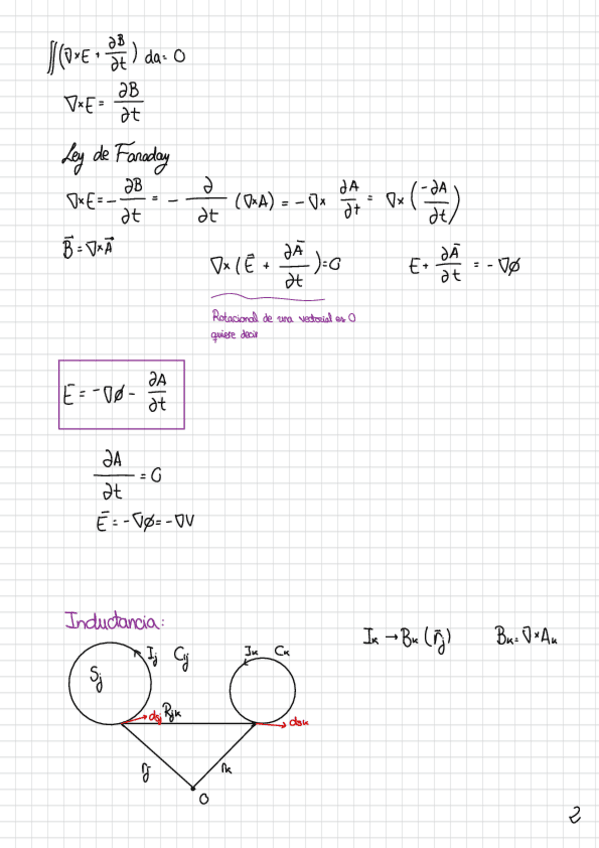 ∬(∇×E + ∂B/∂t) da = 0
∇×E = ∂B/∂t
Ley de Faraday
∇×E = -∂B/∂t = -∂/∂t (∇×A) = -∇× ∂A/∂t = ∇×(-∂A/∂t)
B⃗ = ∇×A⃗
∇×(E̅ + ∂A̅/∂t) = 0 E + ∂A̅/∂t = -∇ϕ
Rotacional de una vectorial es 0
quiere decir
E̅ = -∇ϕ - ∂A/∂t
∂A/∂t = 0
E̅ = -∇ϕ = -∇V
Inductancia:
Iₖ → Bₖ (r̅ⱼ) Bₖ = ∇×Aₖ
Iⱼ Cⱼ Iₖ Cₖ
Sⱼ
dsⱼ Rⱼₖ dsₖ
rⱼ rₖ
O
2